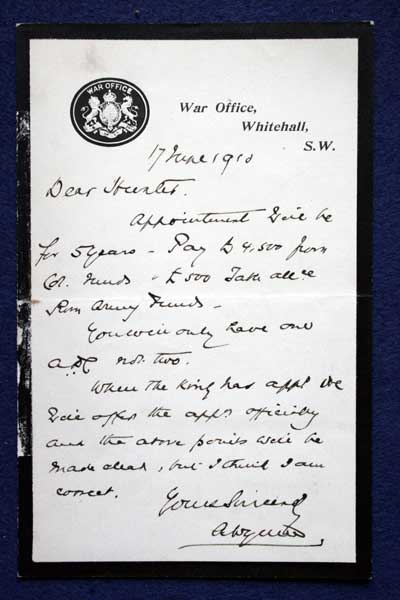 WAR OFFICE
War Office,
Whitehall,
S.W.
17 June 1910
Dear Hunter.
Appointment will be
for 5 years – Pay £4,500 from
Col. Funds – £500 Table all.ce
from Army Funds –
You will only have one
ADC not two.
When the King has appd we
will offer the appt officially
and the above points will be
made clear, but I think I am
correct.
Yours Sincerely